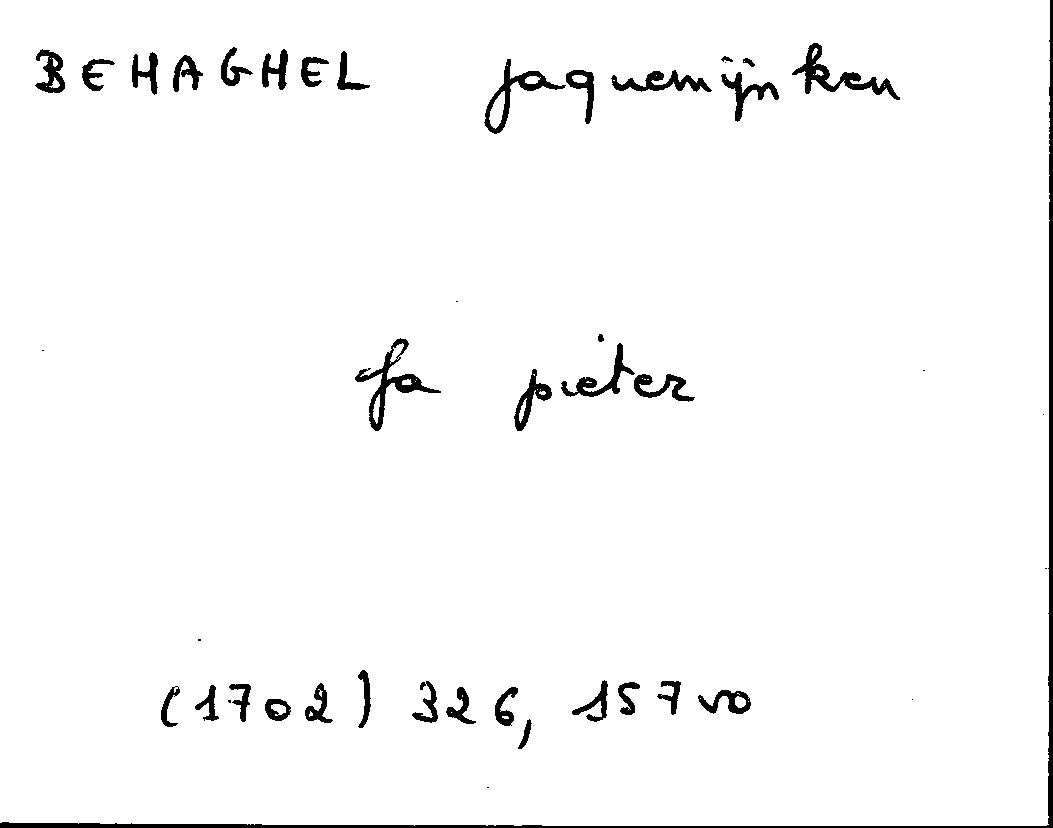 BEHAGHEL jaquemijnken
fa pieter
(1702) 326, 157 vo